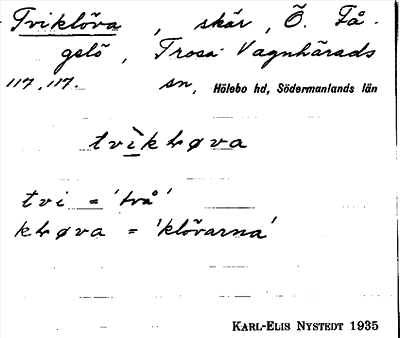 Tviklöva, skär, Ö. Få-
gelö, Trosa-Vagnhärads
117, 117. sn, Hölebo hd, Södermanlands län
tvìkløva
tvi = 'två'
kløva = 'klövarna'
KARL-ELIS NYSTEDT 1935